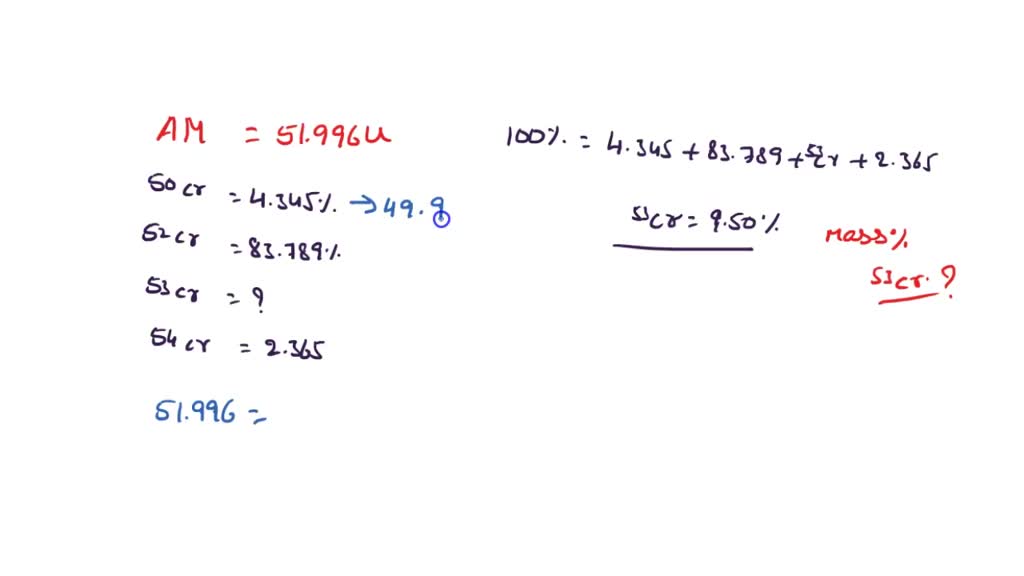 AM = 51.996u
50 cr = 4.345% → 49.9
52 cr = 83.789%
53 cr = ?
54 cr = 2.365
51.996 =
100% = 4.345 + 83.789 + 53cr + 2.365
53cr = 9.50%
Mass%
53cr. ?